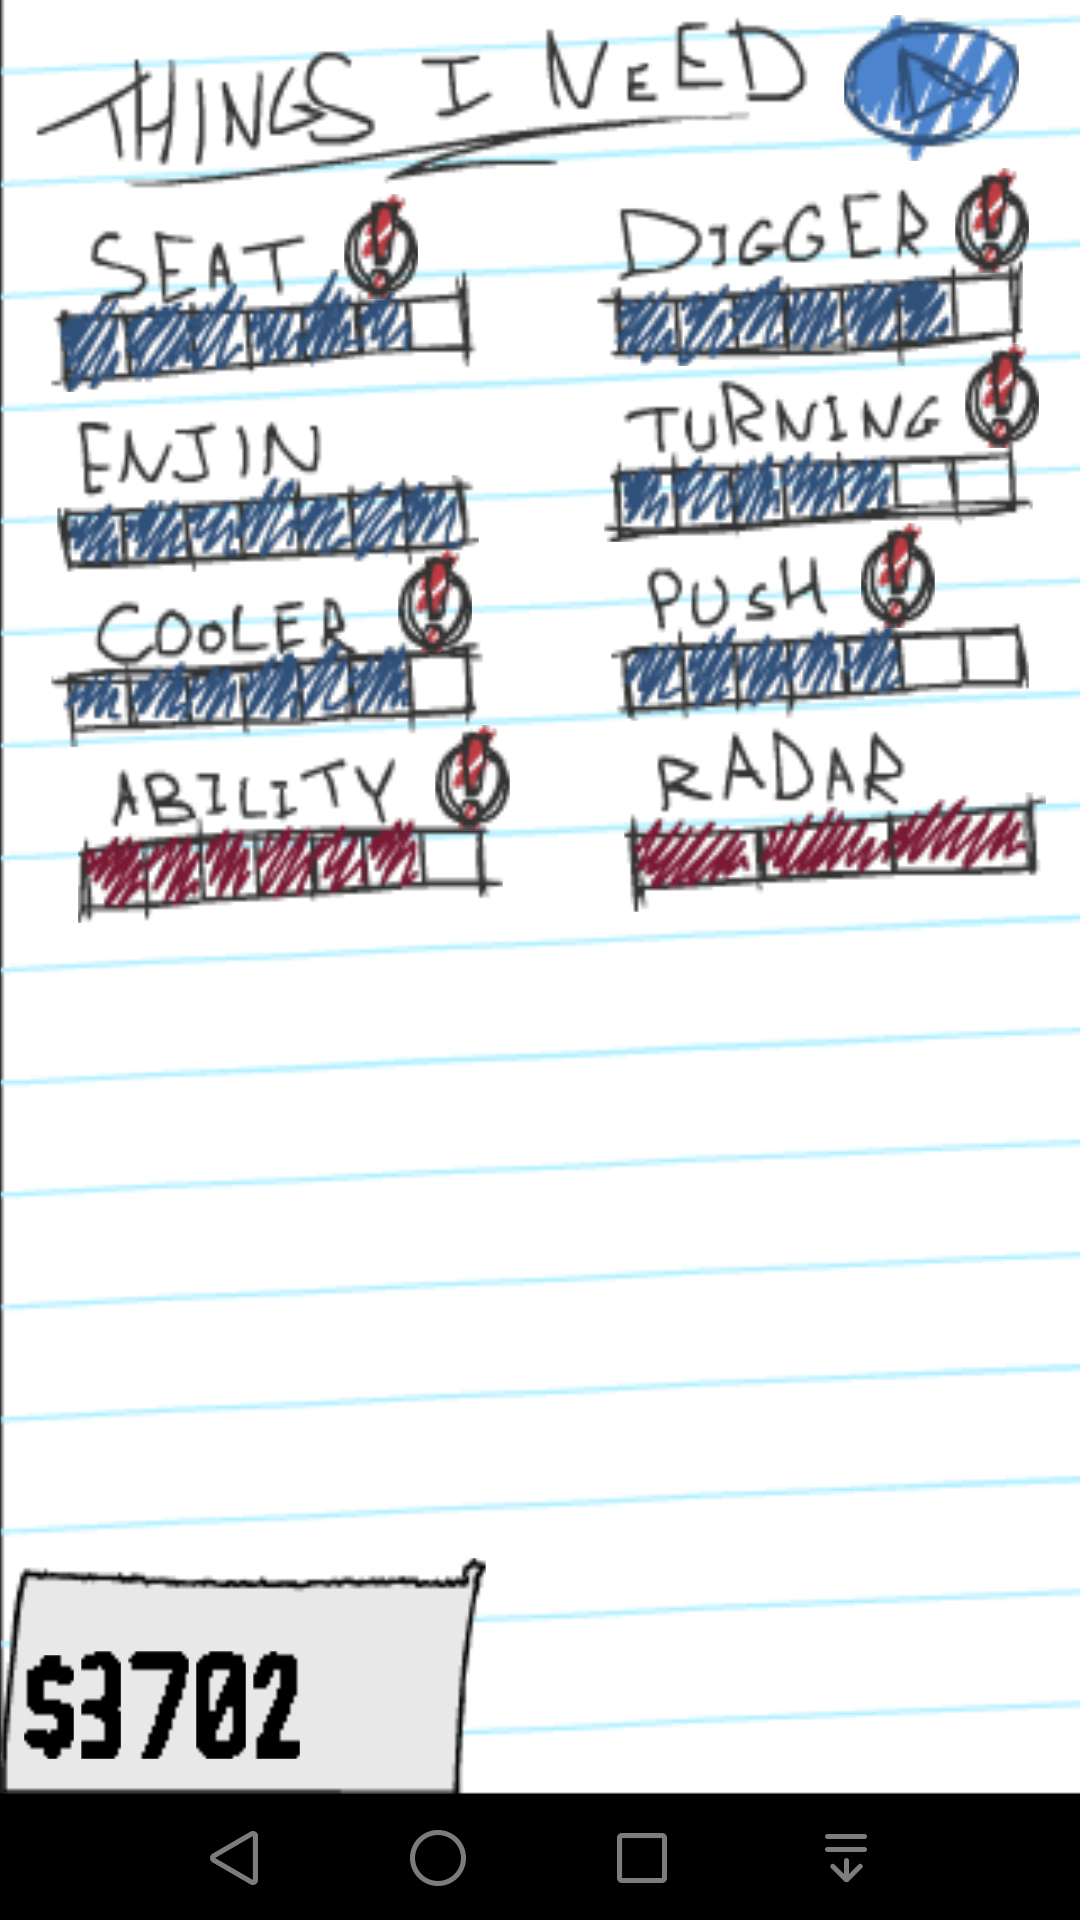 THINGS I NEED
SEAT
DIGGER
ENJIN
TURNING
COOLER
PUSH
ABILITY
RADAR
$3702